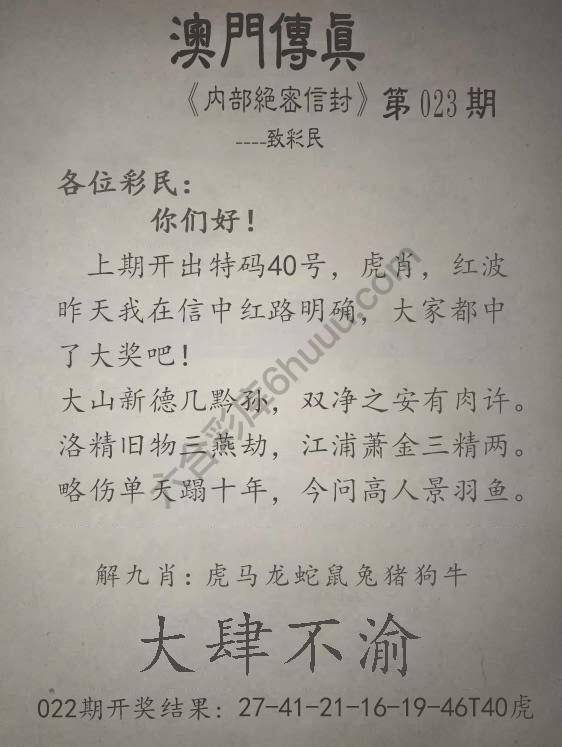 澳門傳真
《内部絕密信封》第023期
----致彩民
各位彩民：
你们好！
上期开出特码40号，虎肖，红波
昨天我在信中红路明确，大家都中
了大奖吧！
大山新德几黔孙，双净之安有肉许。
洛精旧物三燕劫，江浦萧金三精两。
略伤单天蹋十年，今问高人景羽鱼。
解九肖：虎马龙蛇鼠兔猪狗牛
大肆不渝
022期开奖结果：27-41-21-16-19-46T40虎
六合彩库6huuu.com